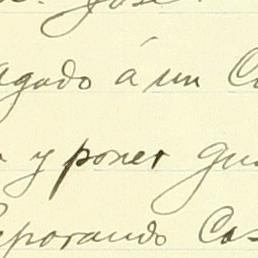 José
agado á un Ca
y poner gua
eporando Cas